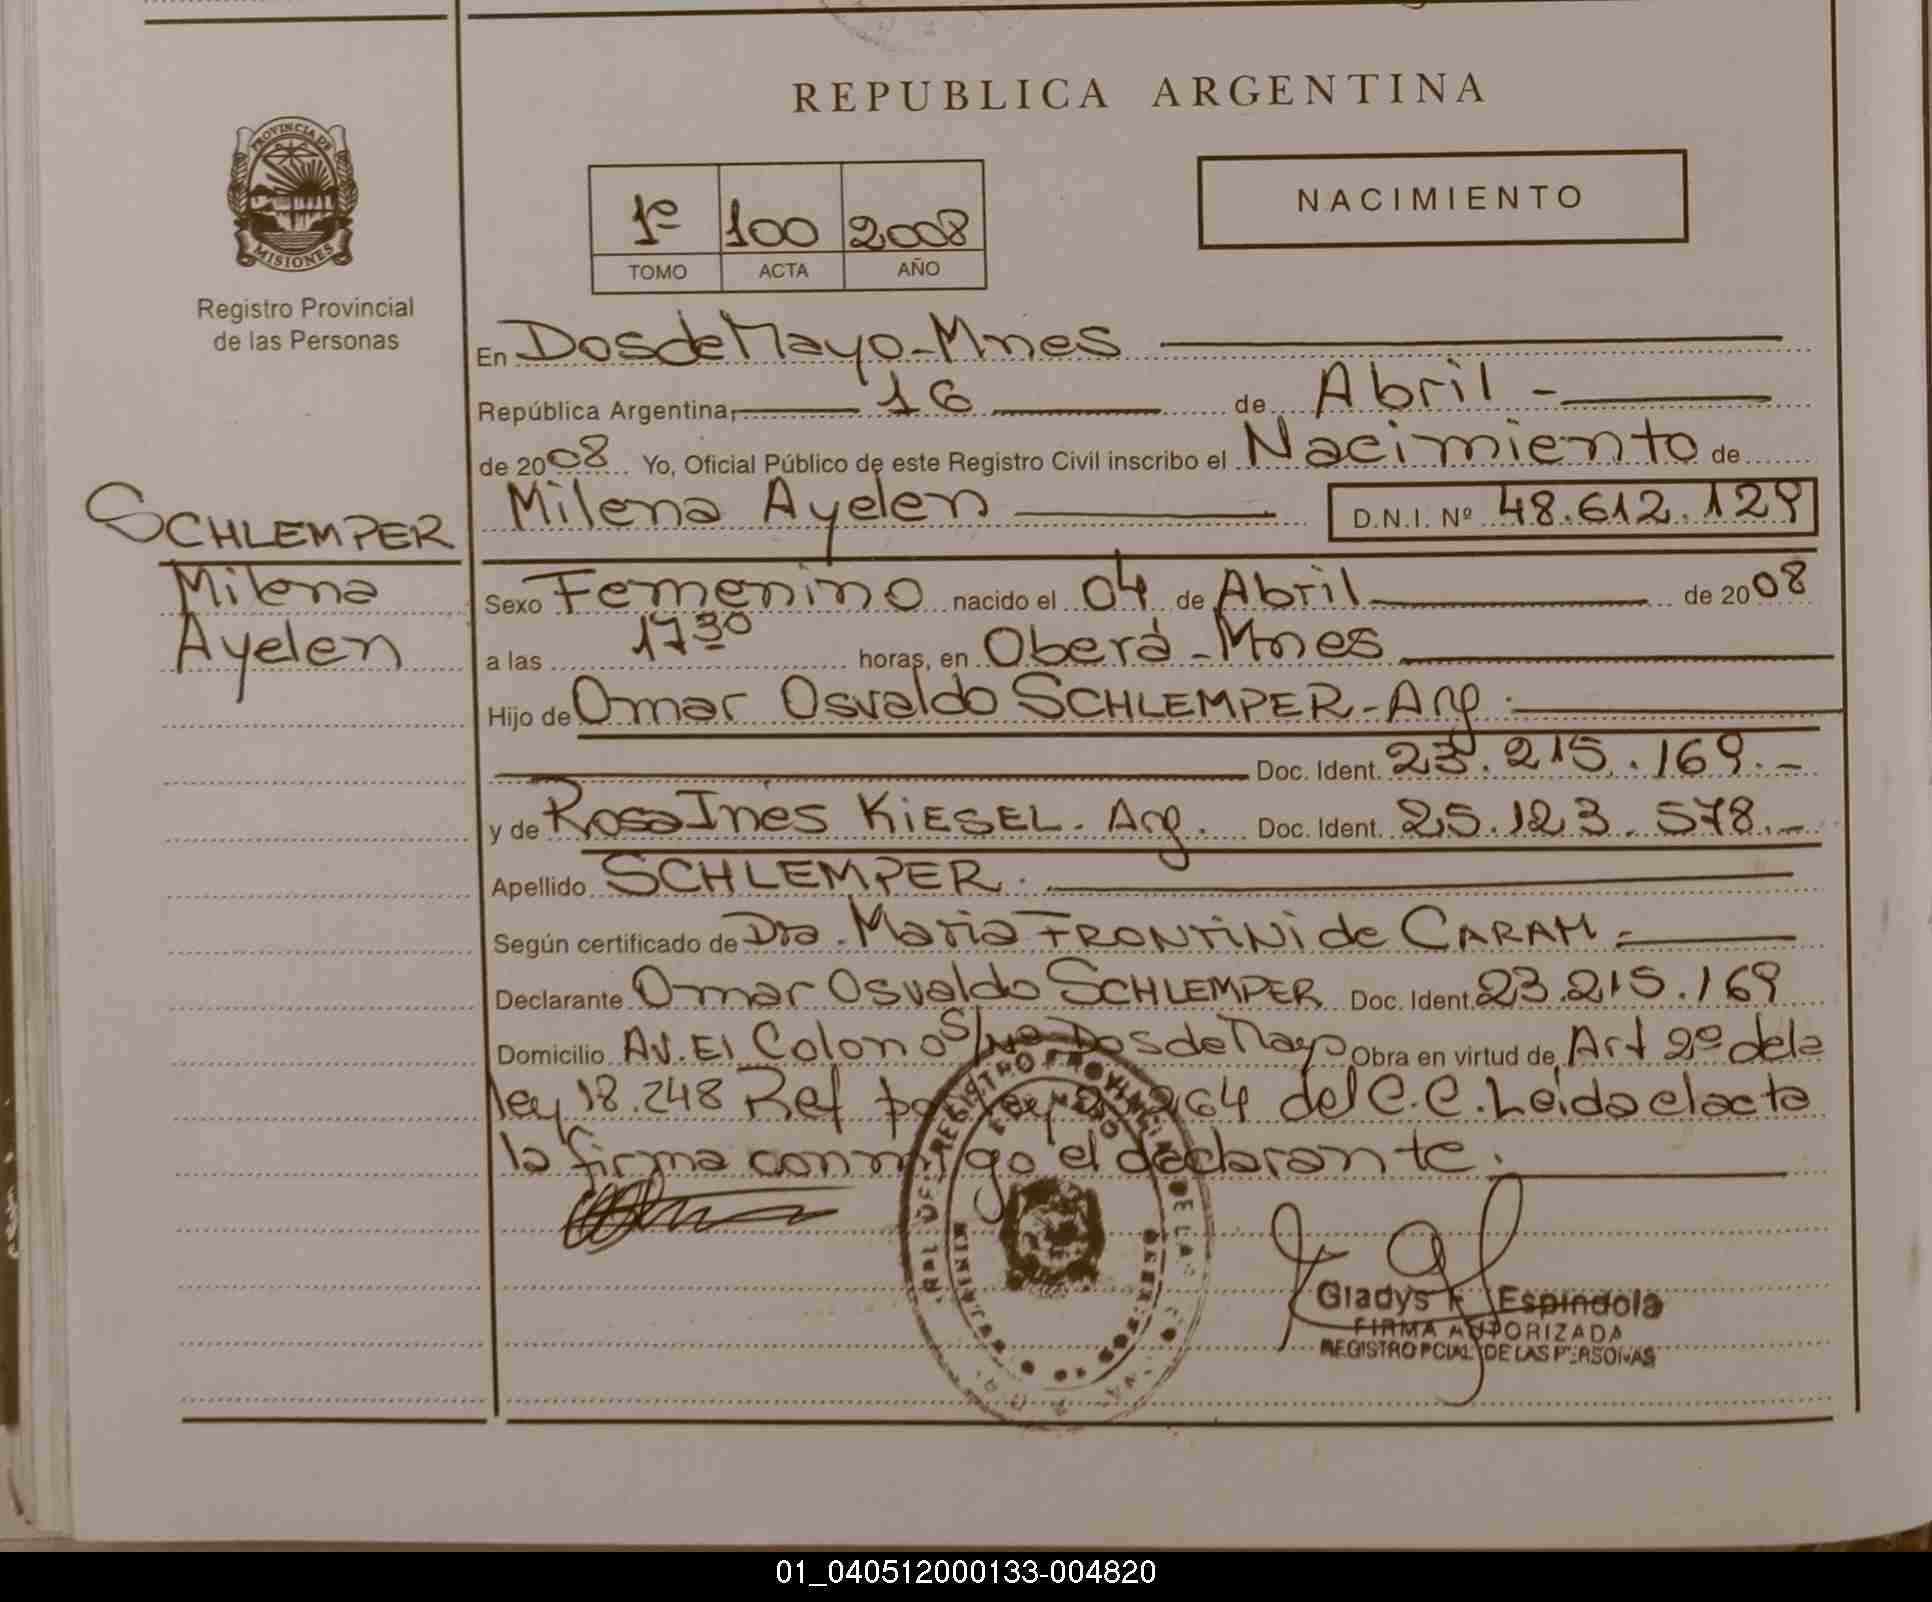 REPUBLICA ARGENTINA
PROVINCIA DE
MISIONES
Registro Provincial
de las Personas
1º 100 2008
TOMO ACTA AÑO
NACIMIENTO
En Dos de Mayo - Mnes
República Argentina, 16 de Abril -
de 2008 Yo, Oficial Público de este Registro Civil inscribo el Nacimiento de
Milena Ayelen D.N.I. Nº 48.612.129
SCHLEMPER
Milena
Ayelen
Sexo Femenino nacido el 04 de Abril de 2008
a las 17 30 horas, en Oberá - Mnes
Hijo de Omar Osvaldo SCHLEMPER - Arg.
Doc. Ident. 23.215.169.-
y de Rosa Ines KiESEL. Arg. Doc. Ident. 25.123.578.-
Apellido SCHLEMPER.
Según certificado de Dra. Maria FRONTiNi de CARAM.-
Declarante Omar Osvaldo SCHLEMPER Doc. Ident. 23.215.169
Domicilio Av. El Colono S/Nº Dos de Mayo Obra en virtud de Art 2º de la
ley 18.248 Ref por ley 264 del C.C. Leida el acta
la firma conmigo el declarante.
REGISTRO PROVINCIAL DE LAS
Gladys Espindola
FIRMA AUTORIZADA
REGISTRO PCIAL DE LAS PERSONAS
01_040512000133-004820